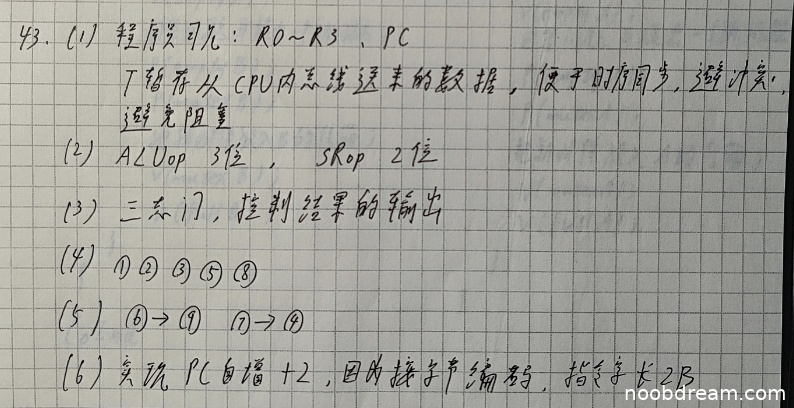 43. (1) 程序员可见: R0~R3、PC
T暂存从CPU内总线送来的数据, 便于时序同步, 避冲突,
避免阻塞
(2) ALUop 3位, SRop 2位
(3) 三态门, 控制结果的输出
(4) ①②③⑤⑧
(5) ⑥→⑨ ⑦→④
(6) 实现PC自增+2, 因为按字节编号, 指令字长2B
noobdream.com